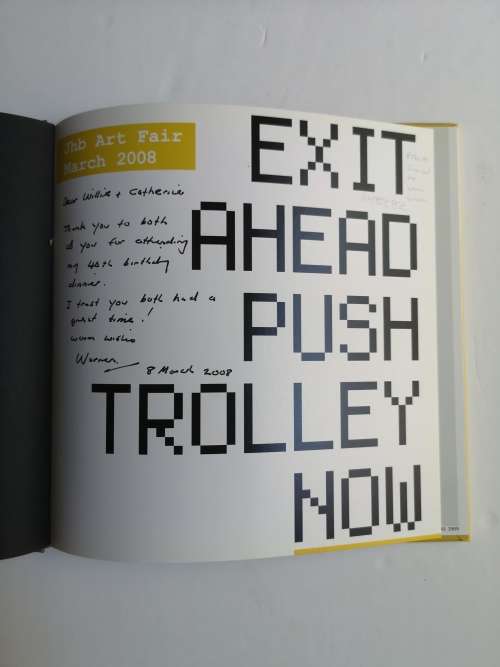 Jhb Art Fair
March 2008
Dear Willie + Catherine
Thank you to both
of you for attending
my 40th birthday
dinner.
I trust you both had a
great time!
warm wishes
Warren
8 March 2008
EXIT
AHEAD
PUSH
TROLLEY
NOW